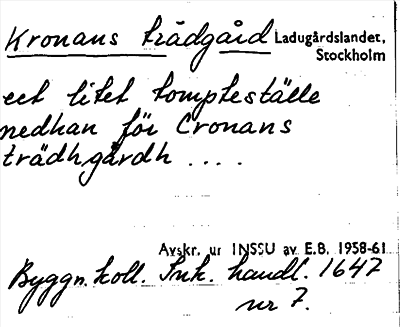 Kronans trädgård Ladugårdslandet,
Stockholm
ect litet tompteställe
nedhan för Cronans
trädhgårdh ....
Avskr. ur INSSU av E.B. 1958-61
Byggn.koll. Ink. handl. 1647
nr 7.